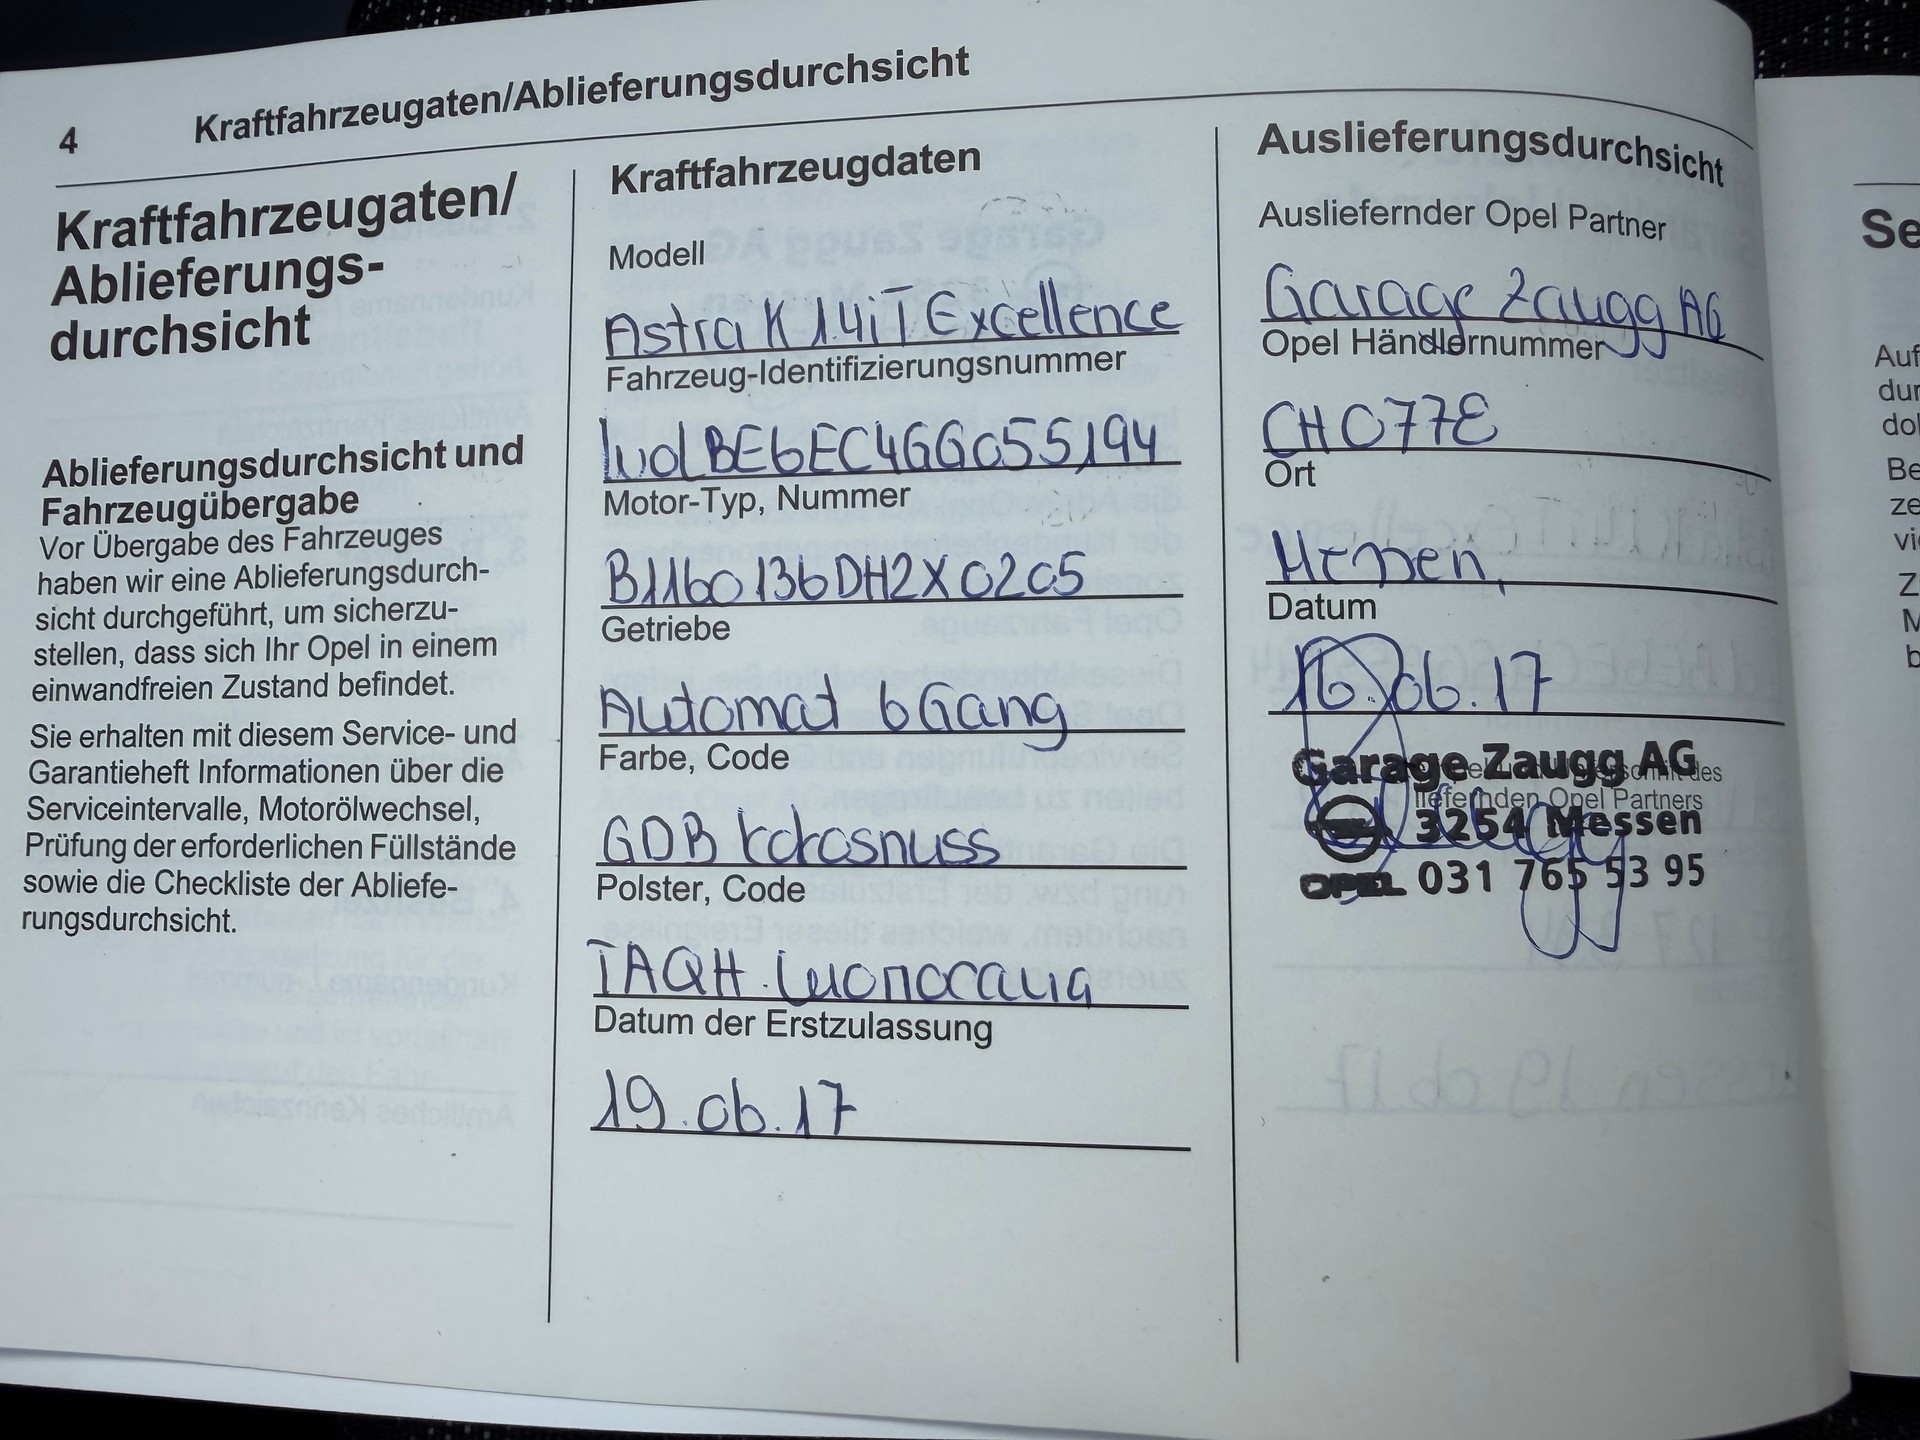 4
Kraftfahrzeugaten/Ablieferungsdurchsicht
Kraftfahrzeugaten/
Ablieferungs-
durchsicht
Ablieferungsdurchsicht und
Fahrzeugübergabe
Vor Übergabe des Fahrzeuges
haben wir eine Ablieferungsdurch-
sicht durchgeführt, um sicherzu-
stellen, dass sich Ihr Opel in einem
einwandfreien Zustand befindet.
Sie erhalten mit diesem Service- und
Garantieheft Informationen über die
Serviceintervalle, Motorölwechsel,
Prüfung der erforderlichen Füllstände
sowie die Checkliste der Abliefe-
rungsdurchsicht.
Kraftfahrzeugdaten
Modell
Astra K 1.4iT Excellence
Fahrzeug-Identifizierungsnummer
W0LBE6EC4GG055194
Motor-Typ, Nummer
B1160136DH2X0205
Getriebe
Automat 6Gang
Farbe, Code
GDB kokosnuss
Polster, Code
TAQH
Datum der Erstzulassung
19.06.17
Auslieferungsdurchsicht
Ausliefernder Opel Partner
Garage Zaugg AG
Opel Händlernummer
CH077E
Ort
Messen,
Datum
16.06.17
Garage Zaugg AG
des
liefernden Opel Partners
3254 Messen
OPEL 031 765 53 95
Se
Auf
dur
Be
ze